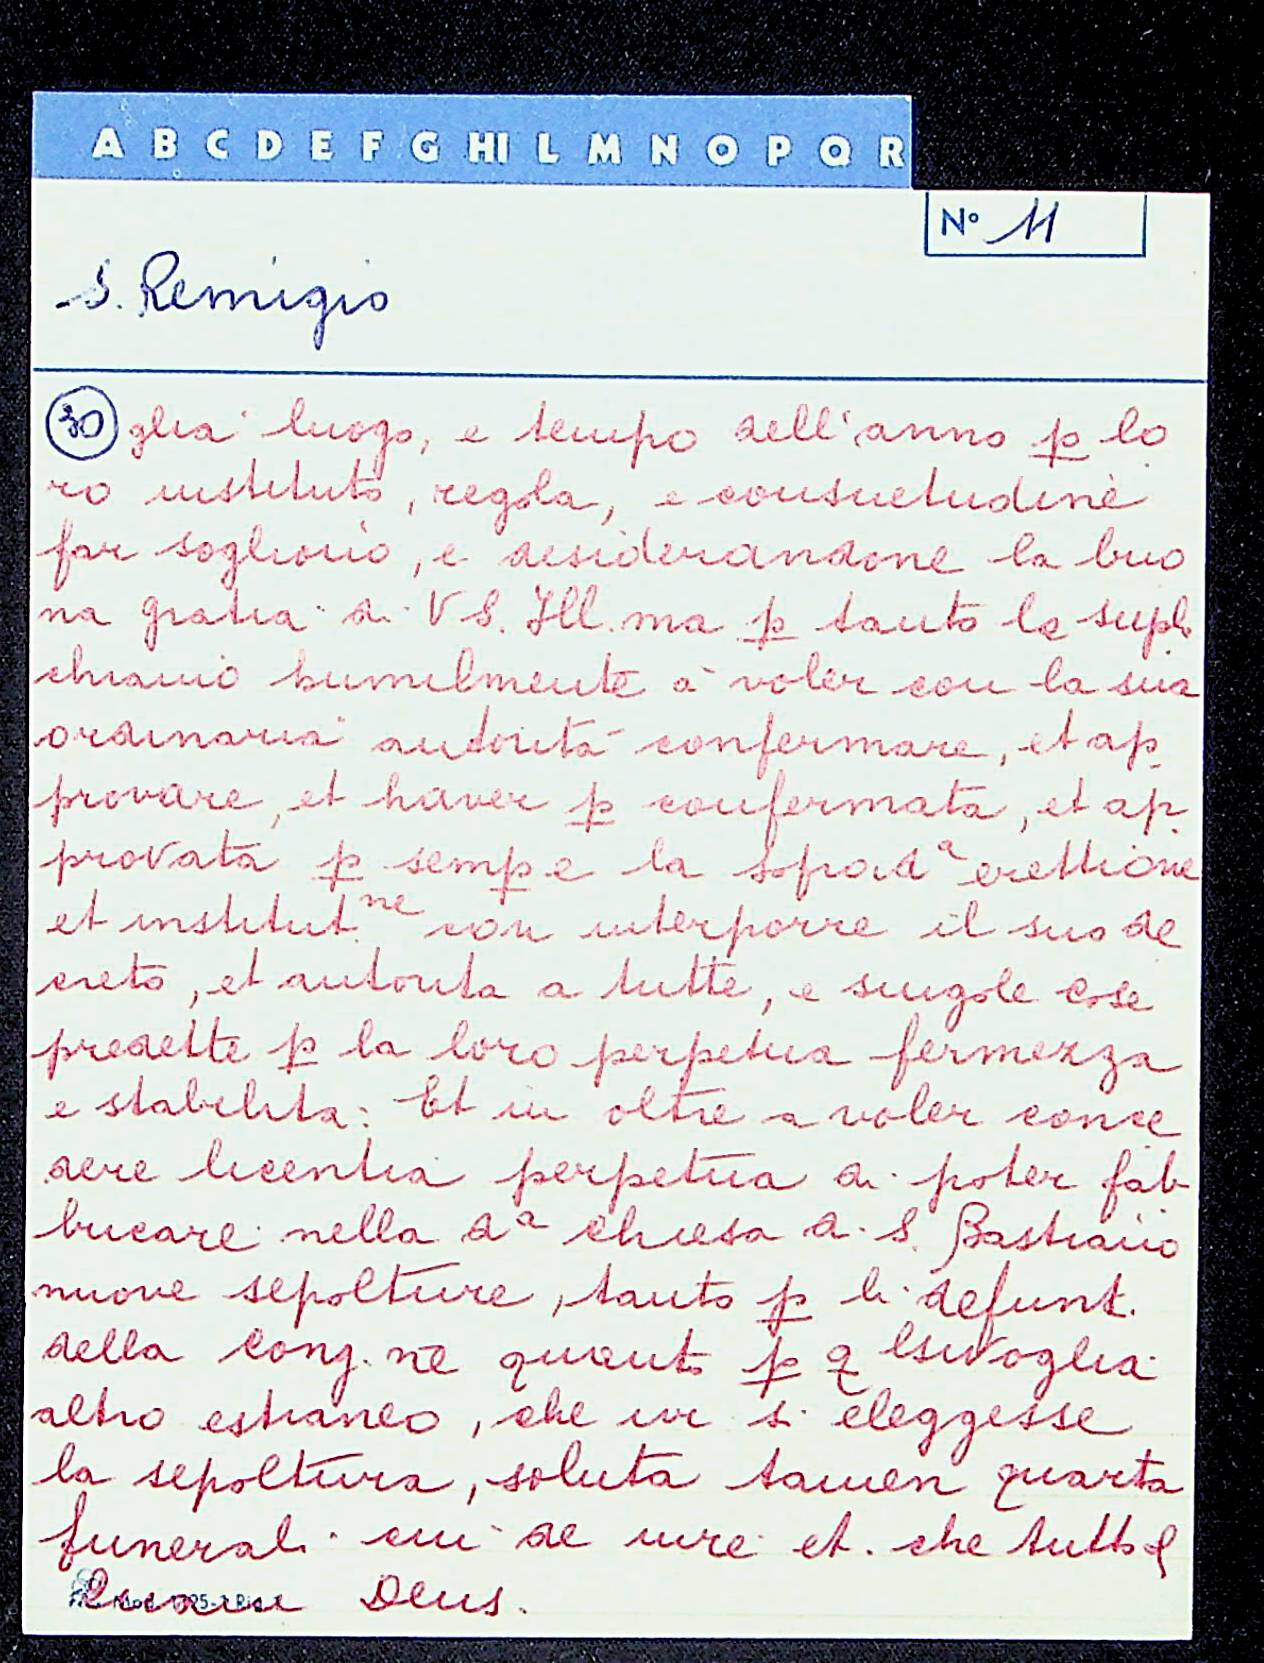 A B C D E F G HI L M N O P Q R
N° 11
S. Remigio
30 glia luogo, e tempo dell'anno p lo
ro instituto, regola, e consuetudine
far sogliono, e desiderandone la buo
na gratia di VS. Ill.ma p tanto la supli
chiamo humilmente à voler con la sua
ordinaria autorità confermare, et ap
provare, et haver p confermata, et ap
provata p sempe la soprad.a erettione
et institut.ne con interporre il suo de
creto, et autorita a tutte, e singole cose
predette p la loro perpetua fermezza
e stabilita: Et in oltre a voler conce
dere licentia perpetua di poter fab
bricare nella da chiesa di S. Bastiano
nuove sepolture, tanto p li defunt.
della Cong.ne quanto p q lsivoglia
altro estraneo, che ivi si eleggesse
la sepoltura, soluta tamen quarta
funerali cui de iure et. che tutto
Deus.